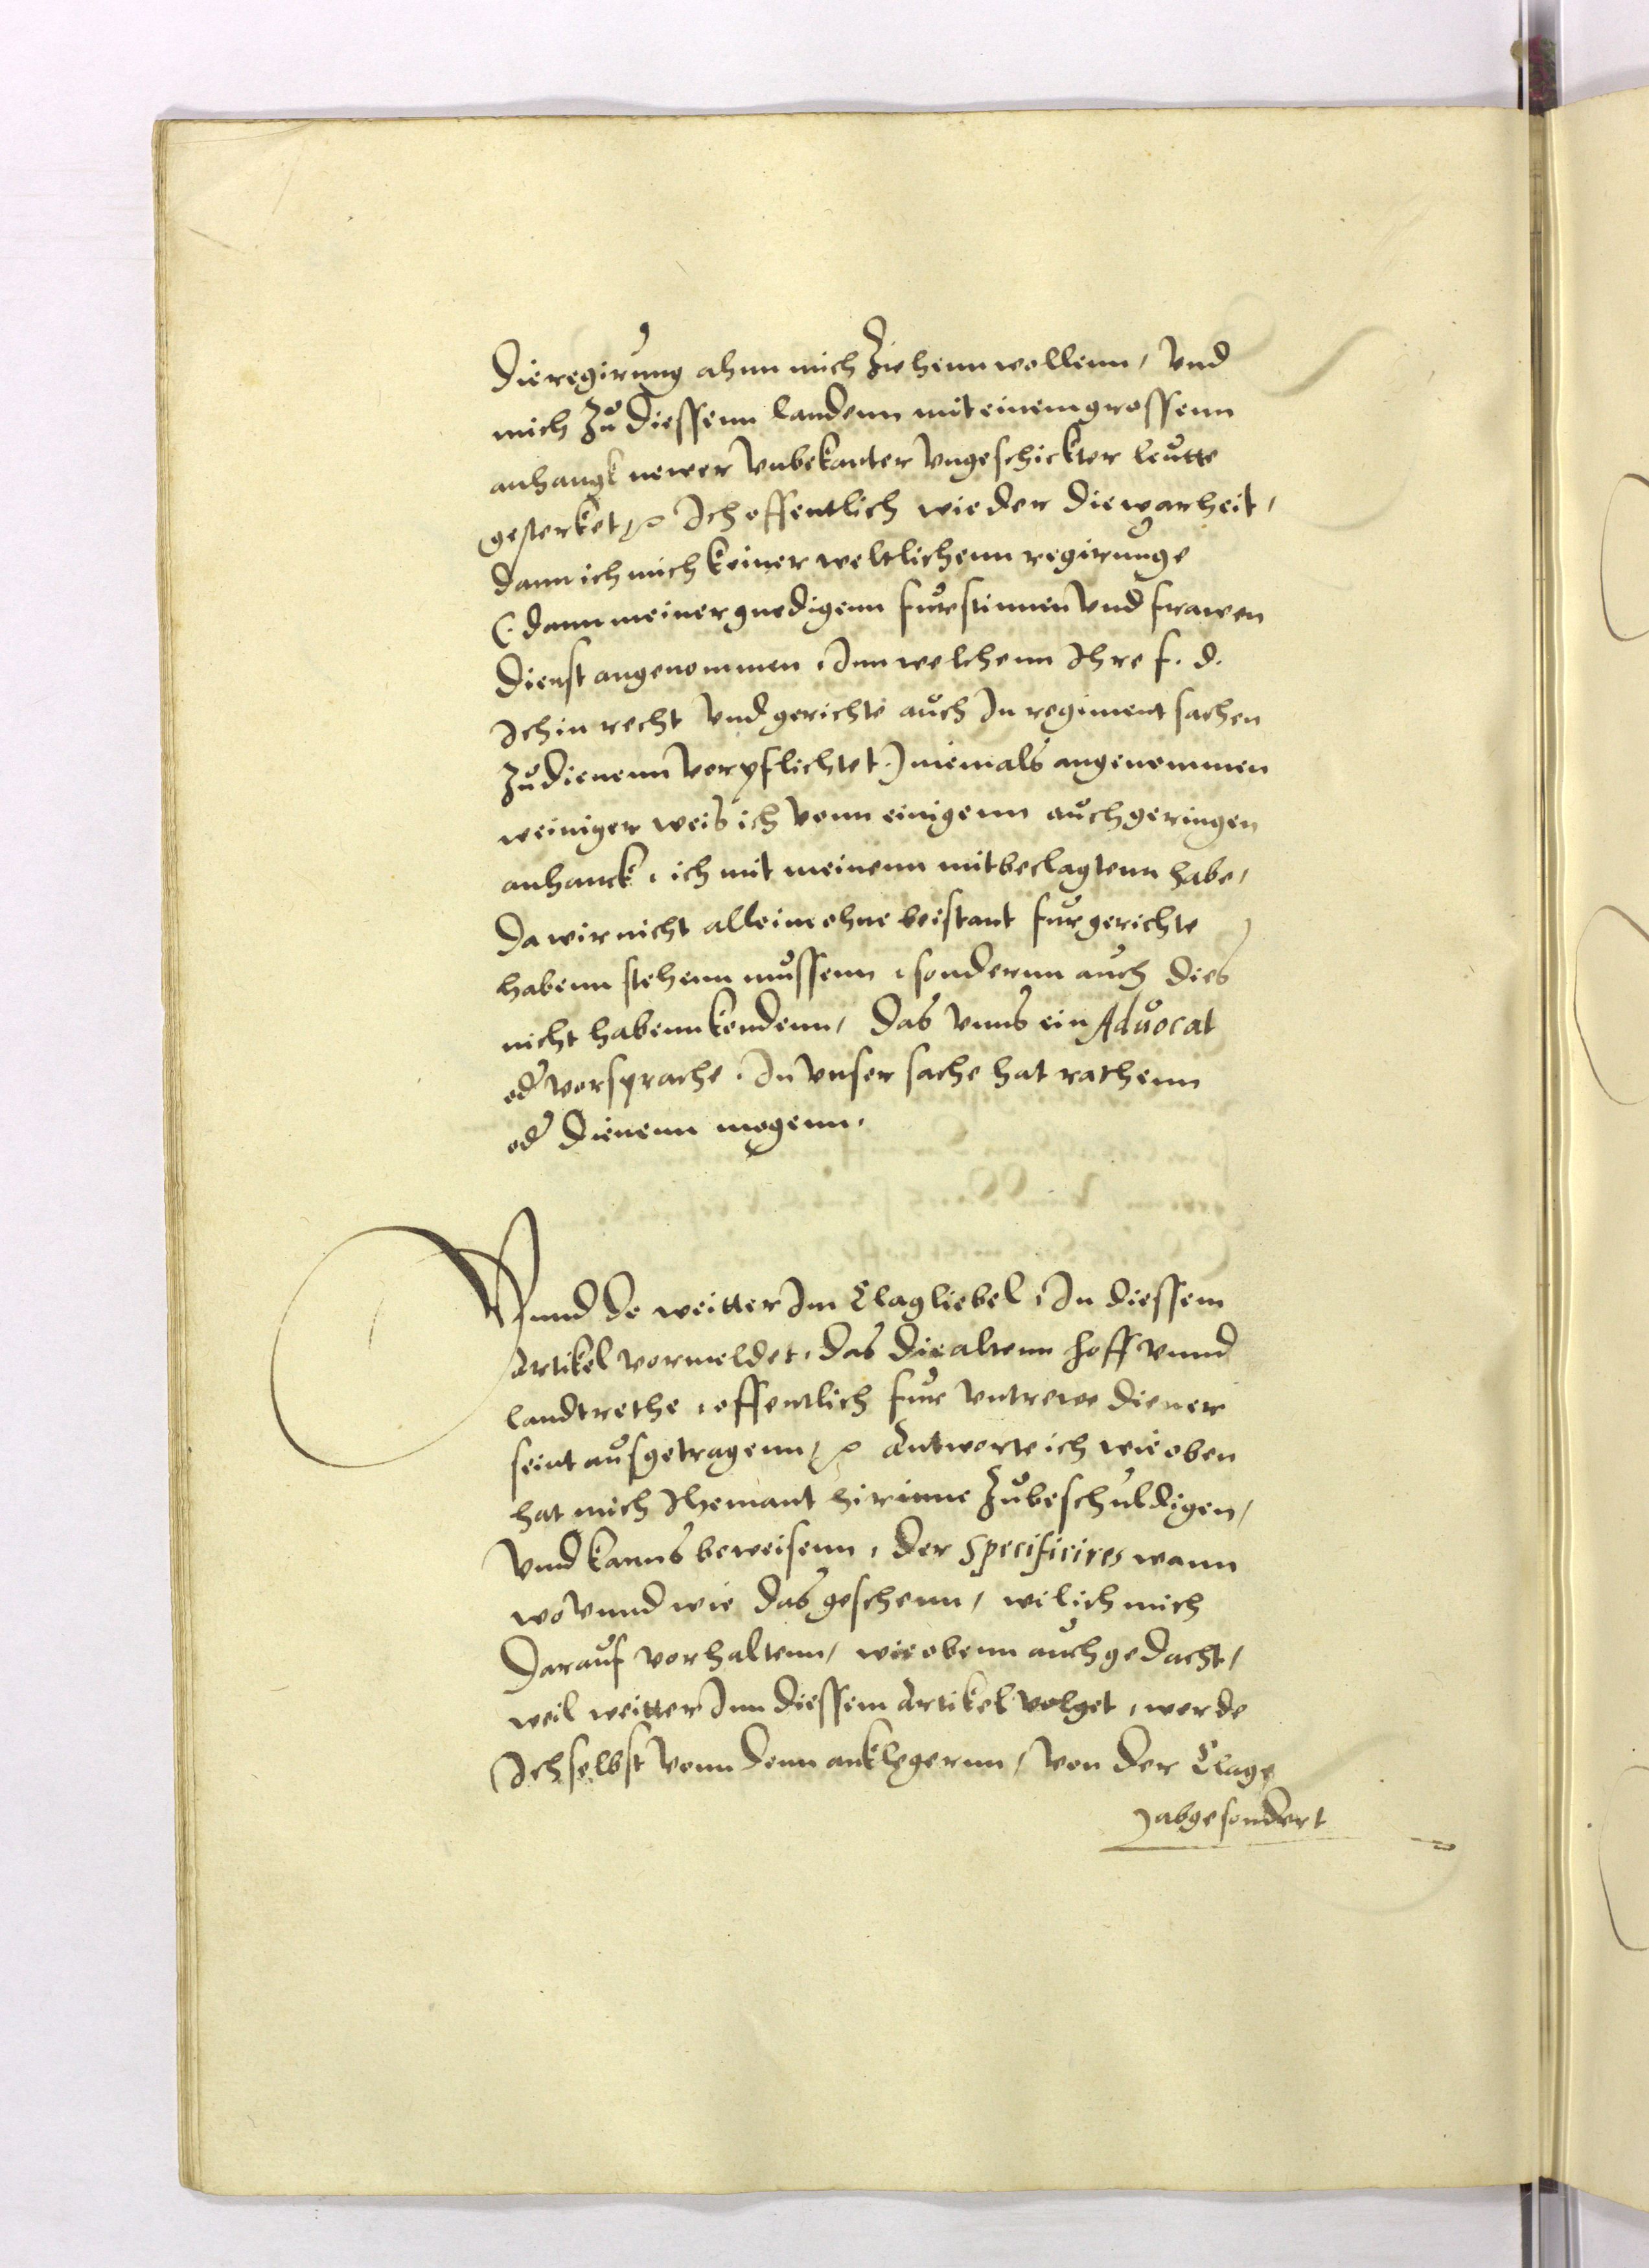 die regirung ahnn mich Ziehenn wollenn, vnd
mich Zů diessenn landenn mit einem grossenn
anhangk newer vnbekanter vngeschickter leutte
gesterket, Ist offentlich wieder die warheit,
dann ich mich keiner weltlichenn regirunge
(dann meiner gnedigenn furstinnen vnd frawen
dienst angenommen, Inn welchenn Ihre f. d.
Ich in recht vnd gerichte auch In regiment sachen
Zu dienenn verpflichtet) niemals angenommen
weiniger weis ich vonn einigenn auch geringen
anhanck, ich mit meinenn mitbeclagtenn habe,
Da wir nicht alleine ohne beistant fur gerichte
habenn stehenn mussenn, sonderun auch dies
nicht habenn kondenn, das vnns ein Advocat
oder vorsprache, In vnser sache hat rathenn
oder dienenn mogenn.
Vnnd de weitter Im Clagliebel, In diessem
Artikel vormeldet, das die altenn hoff vnnd
landtrethe, offentlich fur vntrewe diener
seint ausgetragenn, Antworte ich wie oben
hat mich Ihemant hirinne Zubeschuldigen,
vnnd kanns beweisenn, der specificires wann
wo vnnd wie das geschenn, wil ich mich
darauf vorhaltenn, wie obenn auch gedacht,
weil weitter Inn diessem Artikel volget, werde
Ich selbst vonn denn anklegernn, von der Clage
abgesondert